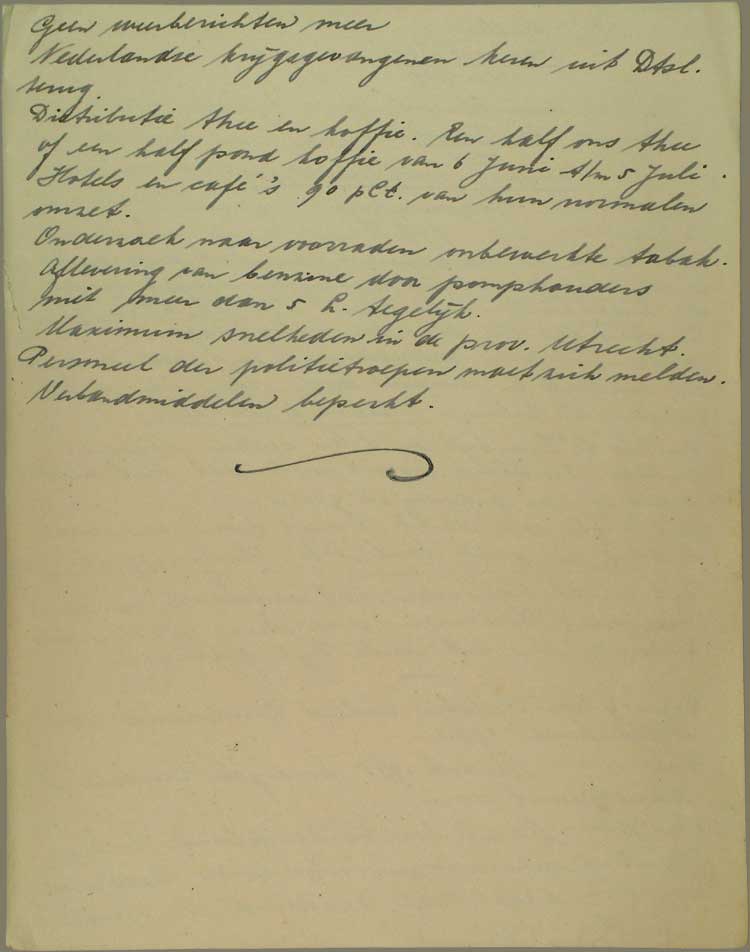 Geen weerberichten meer
Nederlandse krijgsgevangenen keren uit Dtsl.
terug.
Distributie thee en koffie. Een half ons thee
of een half pond koffie van 6 Juni t/m 5 Juli.
Hotels en café's 90 pCt. van hun normalen
omzet.
Onderzoek naar voorraden onbewerkte tabak.
Aflevering van benzine door pomphouders
niet meer dan 5 L. tegelijk.
Maximum snelheden in de prov. Utrecht.
Personeel der politietroepen moet zich melden.
Verbandmiddelen beperkt.